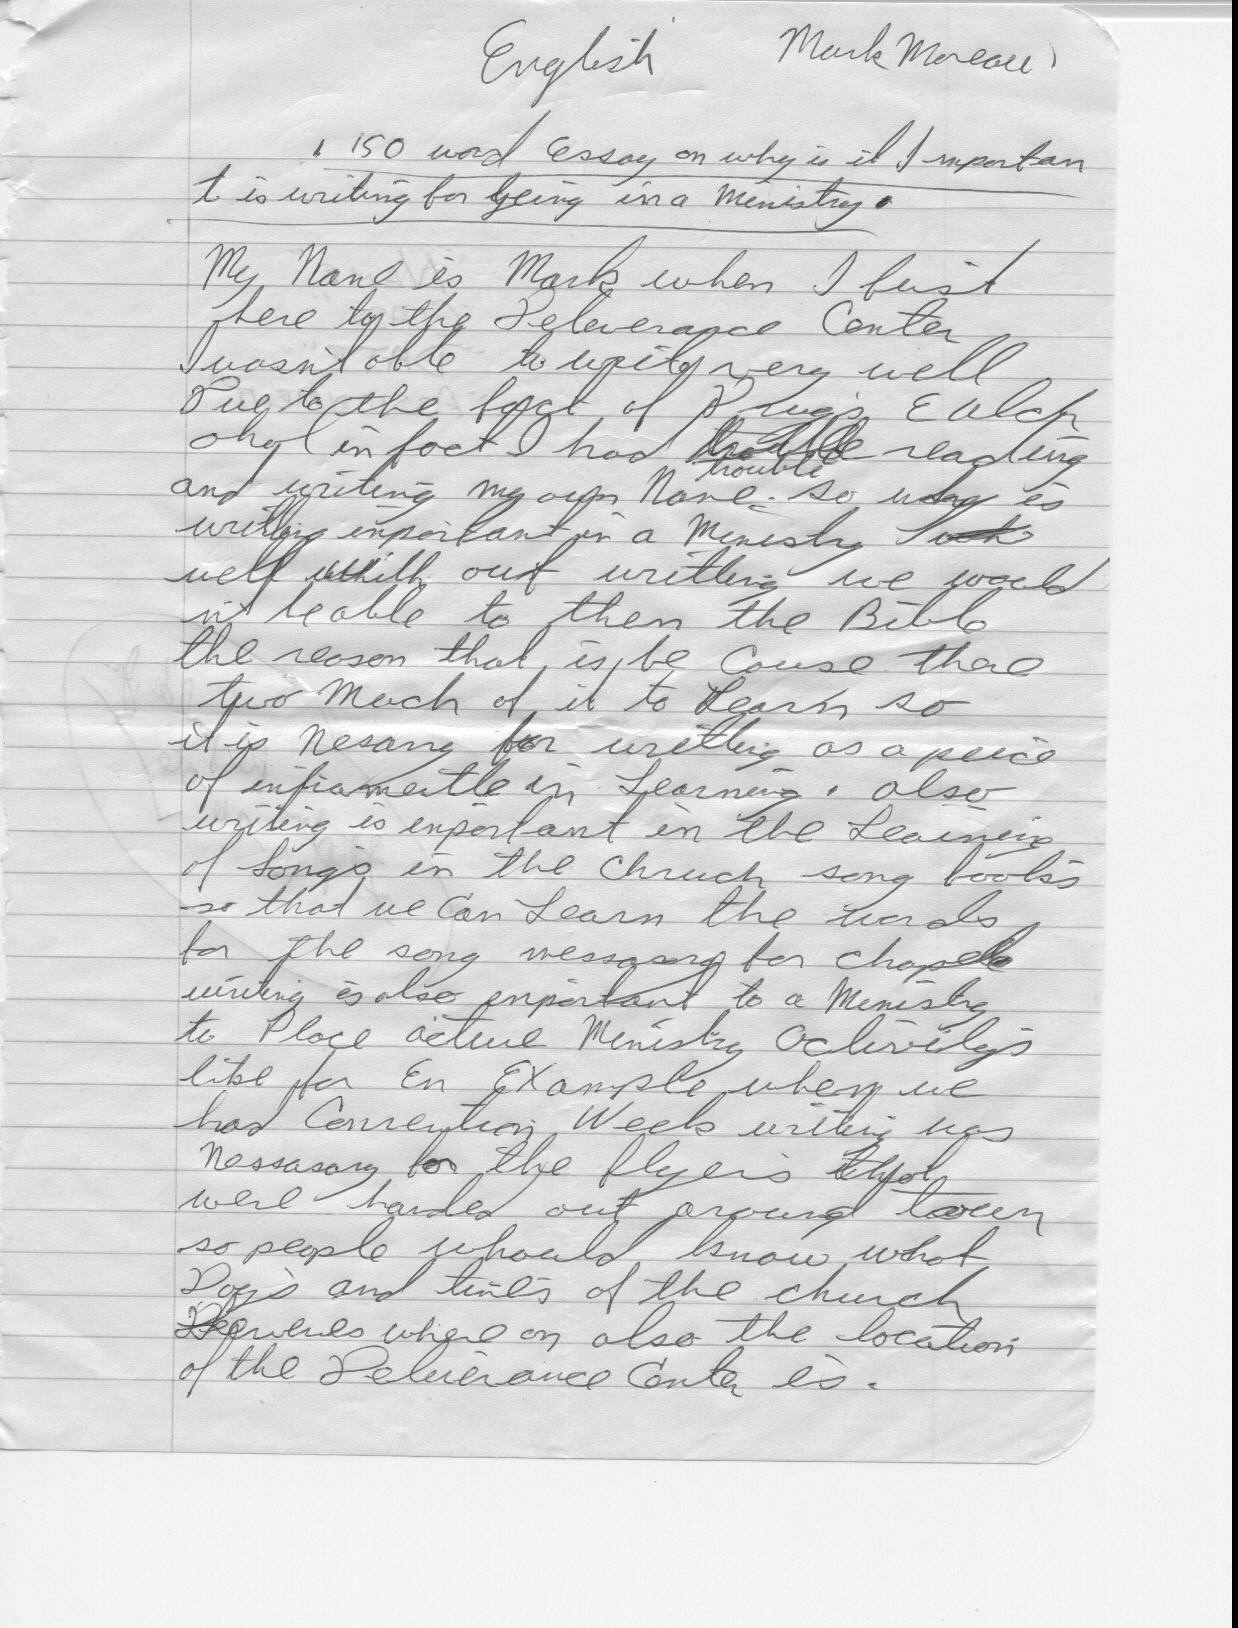 English Mark Moreau
150 word Essay on why is it Importan
t is writing for being in a Ministry.
My Name is Mark when I first
here to the Deliverance Center
I wasn't able to write very well
Due to the fact of Drugs & Alch
ohol in fact I had trouble reading
and writing my own Name. so why is
writing inportant in a Ministry
well with out writting we would
nt be able to then the Bible
the reason that is, be Cause thare
two Much of it to Learn so
it is for writting as a peice
of in Learning. also
writing is inportant in the Learning
of Song's in the Chruch song books
so that we Can Learn the words
for the song messasary for chaple
writing is also inportant to a Ministry
to Place Ministry activity's
like for En Example when we
had Convention Week writing was
Nessasary for the flyers that
were handed out around town
so people whould know what
Day's and time's of the church
where on also the location
of the Deliverance Center is.